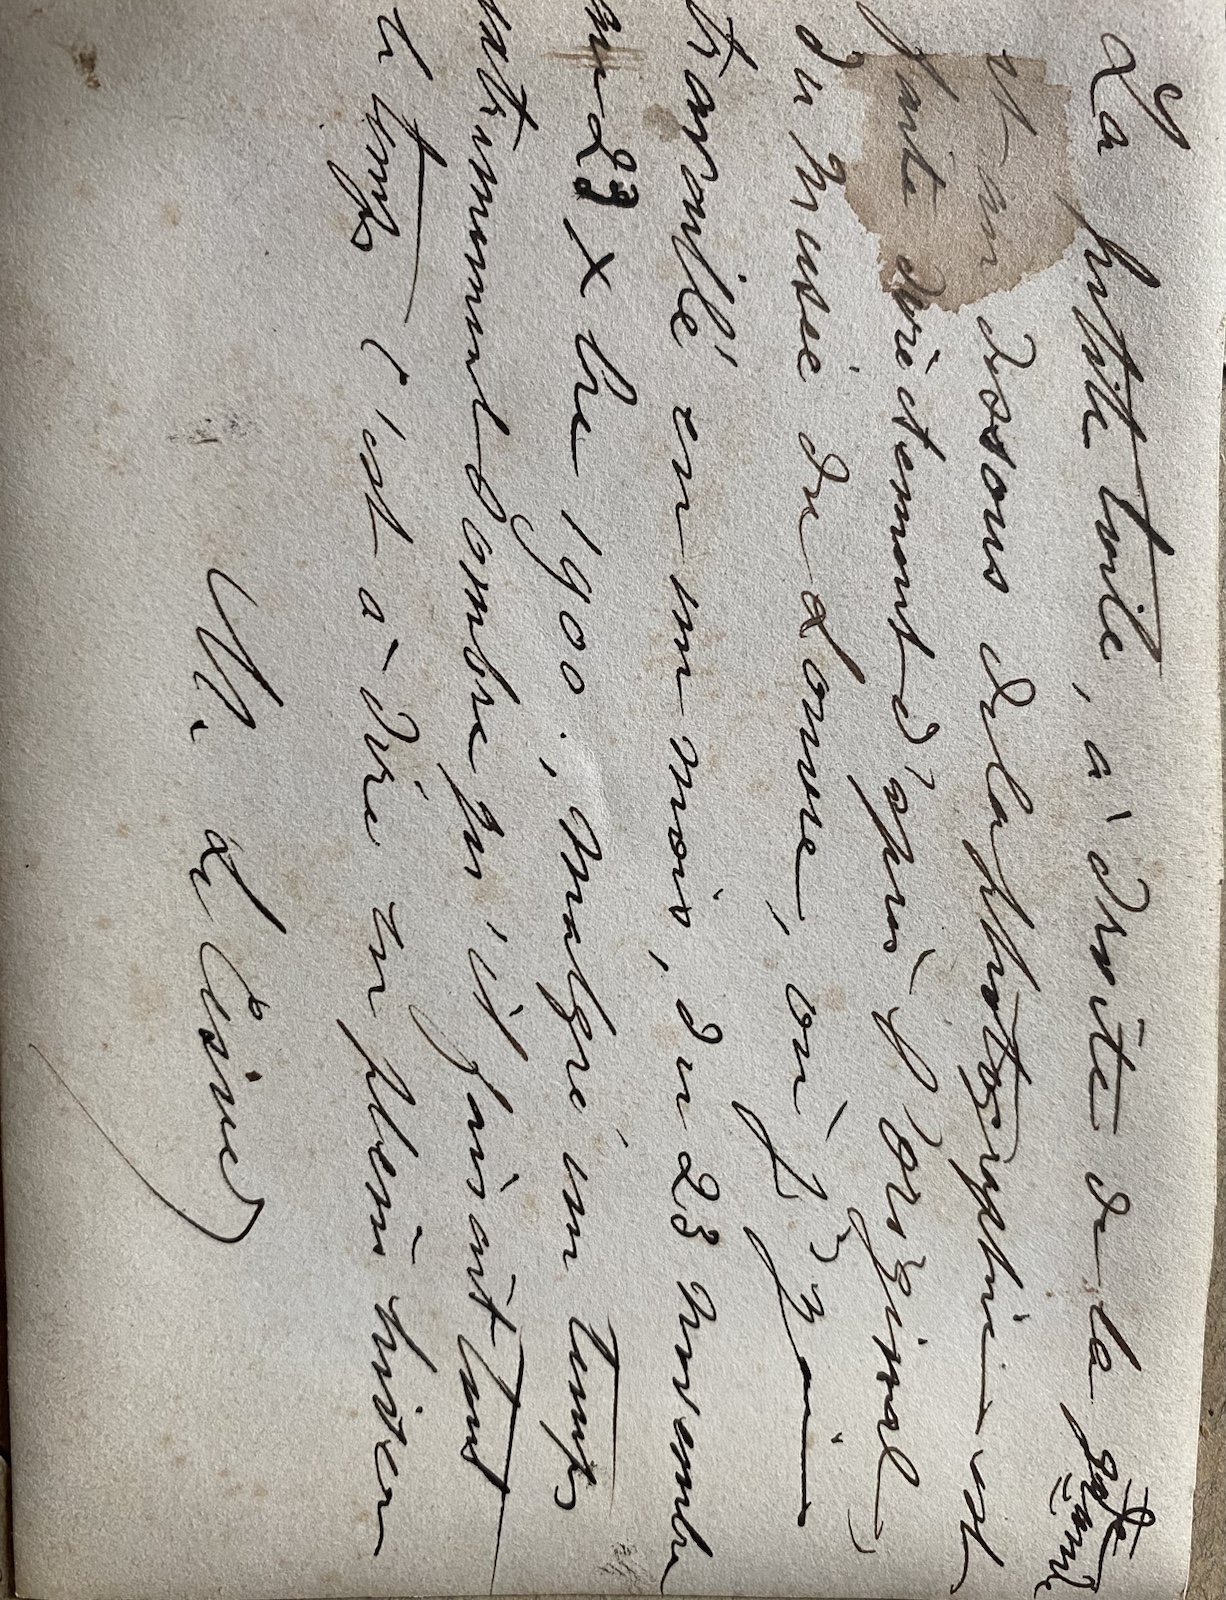 La petite toile, à droite de la gde
et au dessous de la photographie est
faite directement d'après l'original
du Musée du Louvre, où j'y ai
travaillé en un mois, du 23 novembre
au 23 Xbre 1900, malgré un temps
extrêmement sombre qu'il faisait tout
le temps c'est à dire en plein hiver